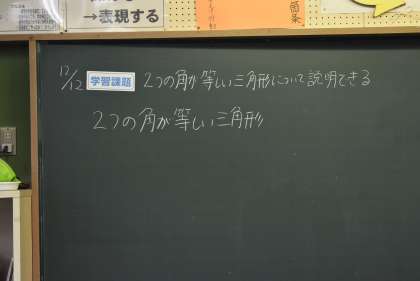 →表現する
12/12 学習課題 2つの角が等しい三角形について説明できる
2つの角が等しい三角形